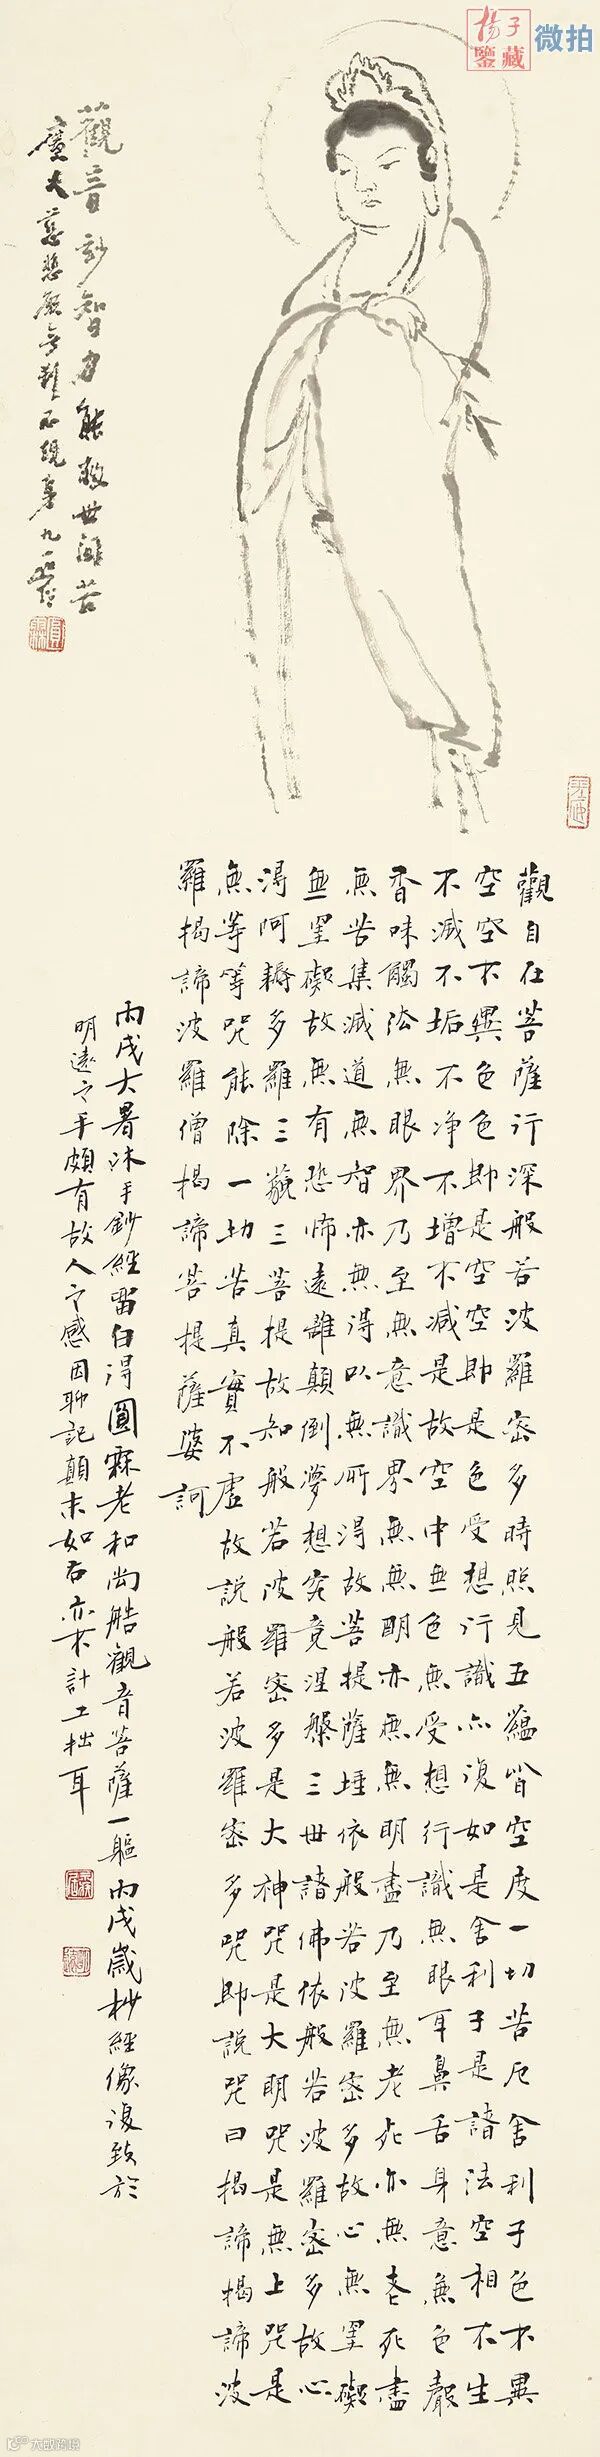 楊子
鑒藏
微拍
觀音妙智力能救世間苦
廣大慈悲願無刹不現身九一
觀自在菩薩行深般若波羅密多時照見五蘊皆空度一切苦厄舍利子色不異
空空不異色色即是空空即是色受想行識亦復如是舍利子是諸法空相不生
不滅不垢不净不增不減是故空中無色無受想行識無眼耳鼻舌身意無色聲
香味觸法無眼界乃至無意識界無無明亦無無明盡乃至無老死亦無老死盡
無苦集滅道無智亦無得以無所得故菩提薩埵依般若波羅密多故心無罣礙
無罣礙故無有恐怖遠離顛倒夢想究竟涅槃三世諸佛依般若波羅密多故心
得阿耨多羅三藐三菩提故知般若波羅密多是大神咒是大明咒是無上咒是
無等等咒能除一切苦真實不虛故説般若波羅密多咒即説咒曰揭諦揭諦波
羅揭諦波羅僧揭諦菩提薩婆訶
丙戌大暑沐手鈔經留白得圓霖老和尚皓觀音菩薩一軀丙戌歲杪經像復致於
明遠之手頗有故人之感因聊記顛末如右亦不計工拙耳